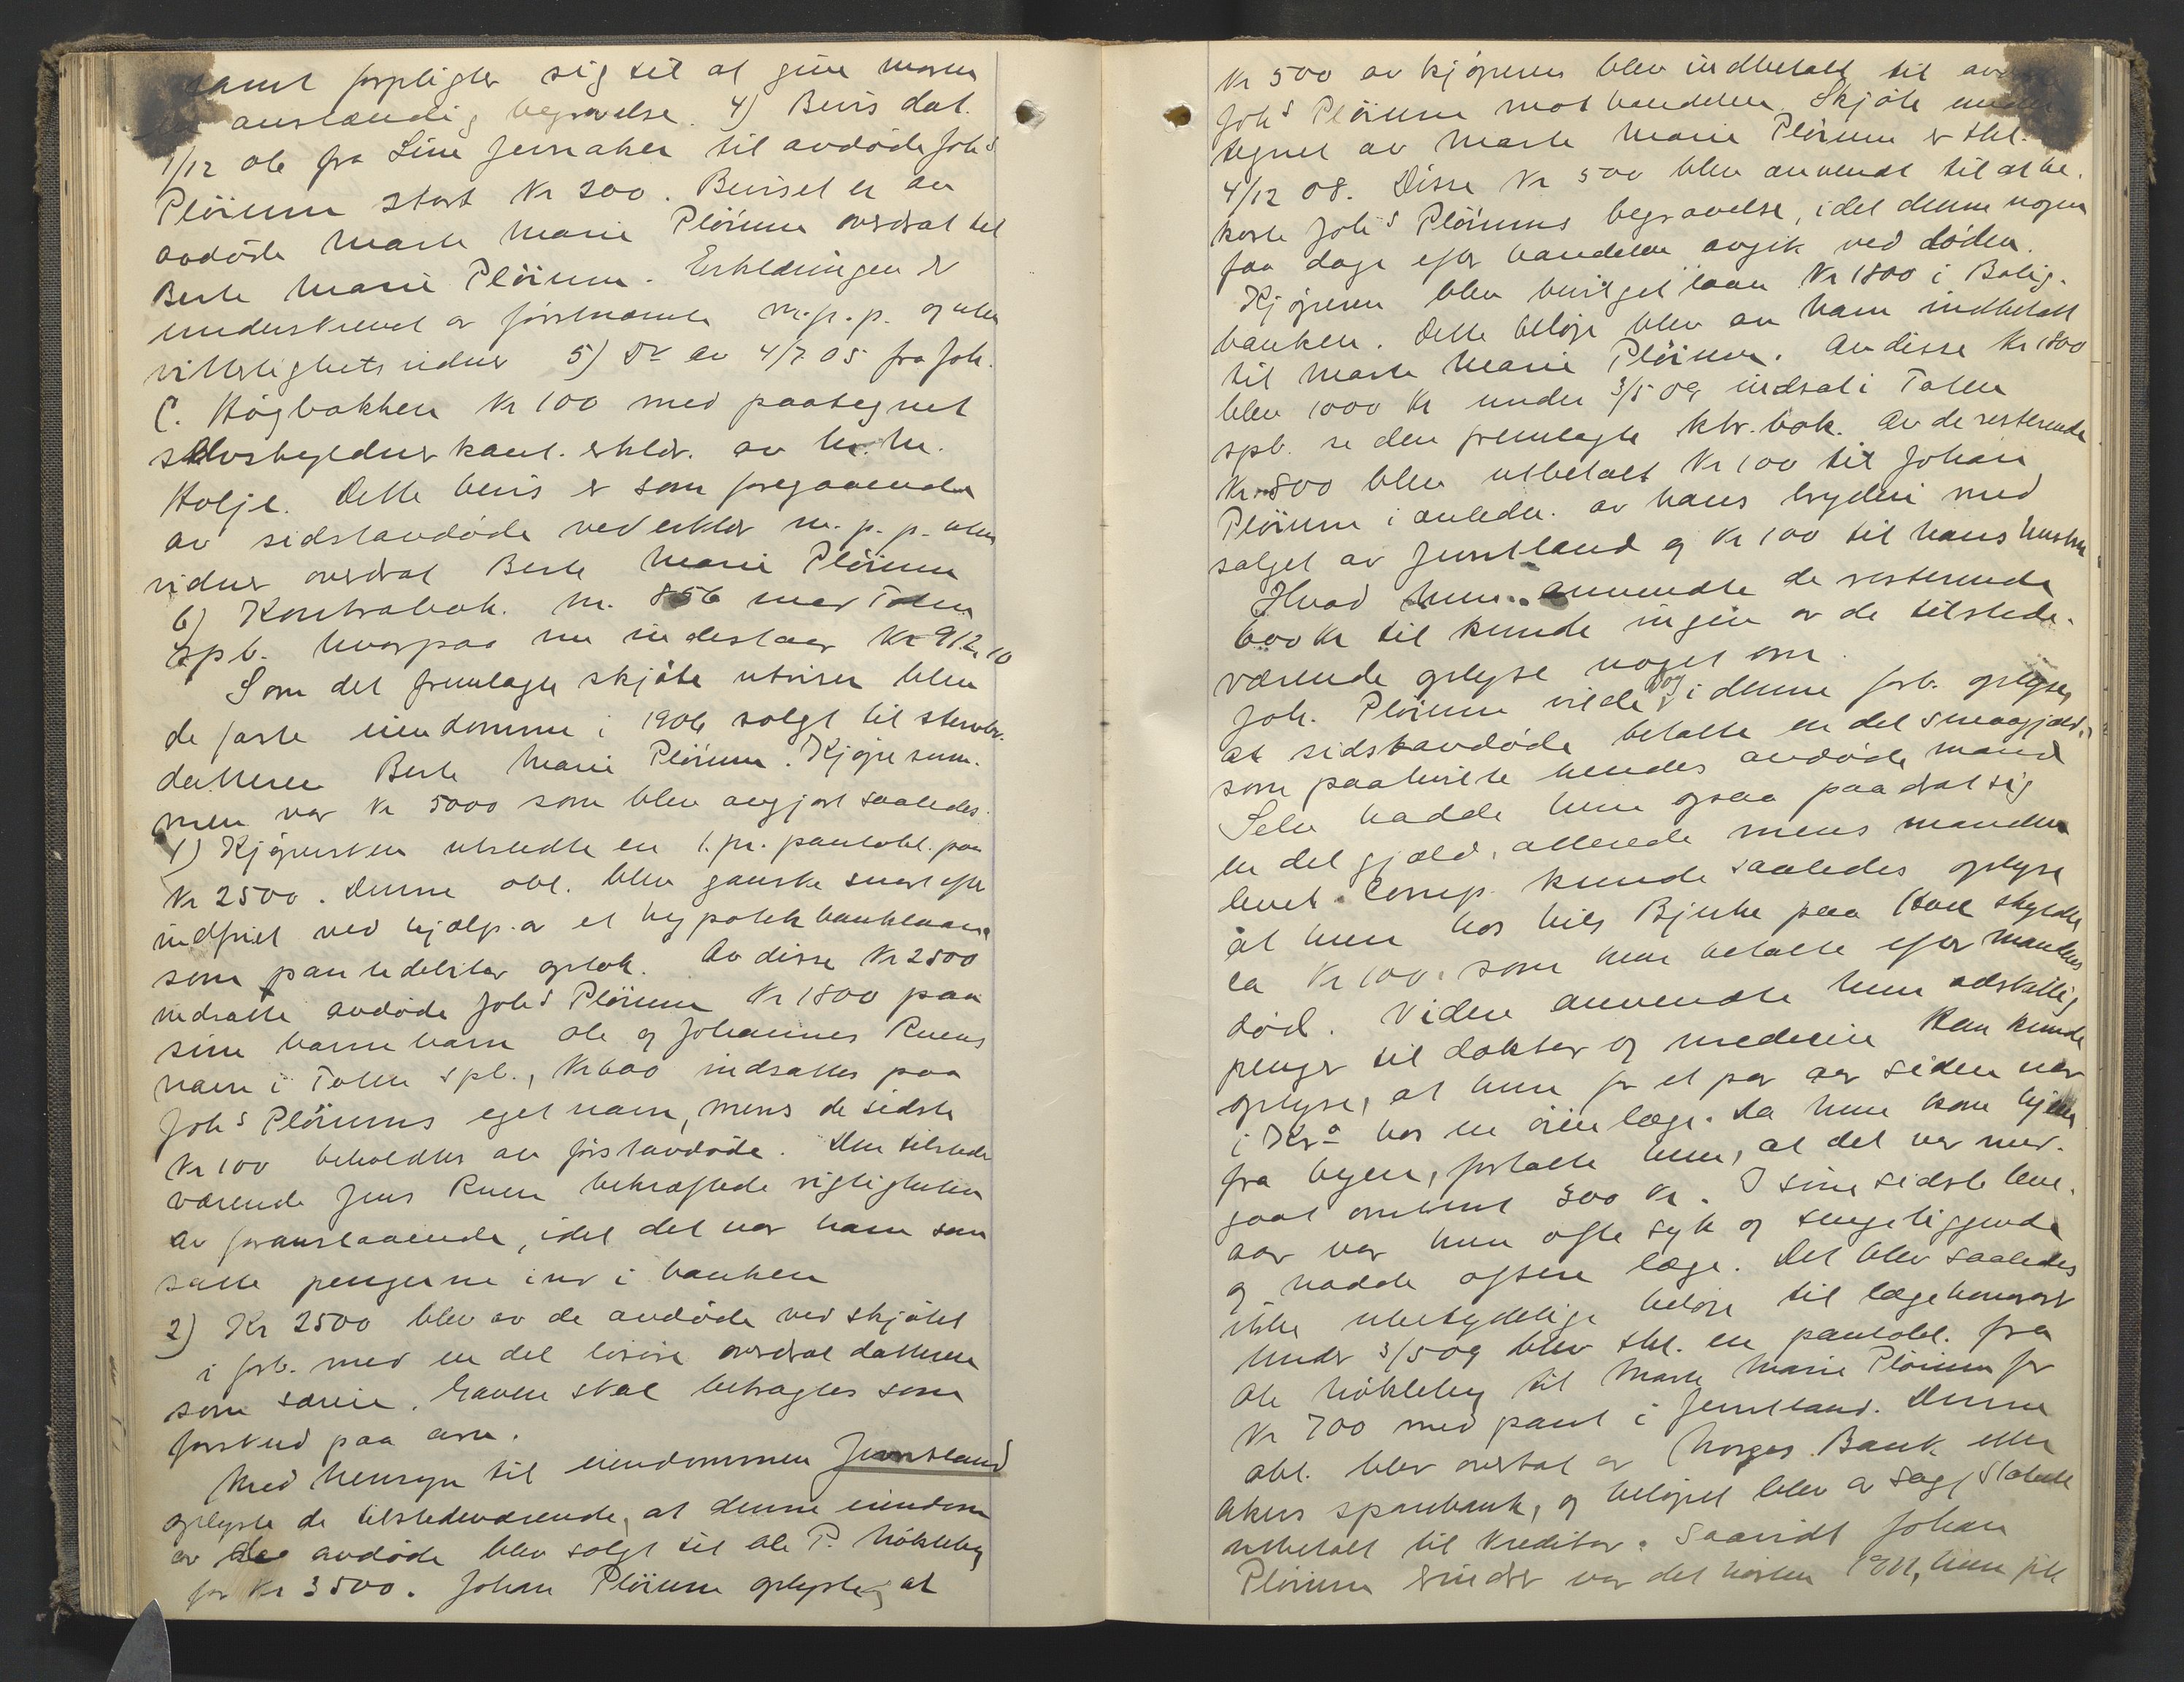 samt forpligter sig til at give moren
en anstændig begravelse. 4) Bevis dat.
1/12 06 fra Line Jensaker til avdöde Johs
Plöium stort Kr 200. Beviset er av
avdöde Marte Marie Plöium overdrat til
Berte Marie Plöium. Erklæringen er
underskrevet av förstnævnte m.p.p. og uten
vitterlighetsvidner 5) Do av 4/7 05 fra Joh.
C. Högbakken Kr 100 med paategnet
selvskyldnerkaut. erklær. av M. M.
Holje. Dette bevis er som foregaaende
av sidstavdöde ved erklær m. p. p. uten
vidner overdrat Berte Marie Plöium
6) Kontrabok. nr. 856 med Toten
spb. hvorpaa nu indestaar Kr 912,10
Som det fremlagte skjöte utviser blev
de faste eiendomme i 1906 solgt til stervbo.
datteren Berte Marie Plöium. Kjöpesum-
men var Kr 5000 som blev avgjort saaledes.
1) Kjöpersken utstedte en 1. pr. pantobl. paa
Kr 2500. Denne obl. blev ganske snart efter
indfriet ved hjælp av et hypotekbanklaan
som pantedebitor optok. Av disse Kr 2500
indsatte avdöde Johs Plöium Kr 1800 paa
sine barnebarn Ole og Johannes Ruens
navn i Toten spb., Kr 600 indsattes paa
Johs Plöiums eget navn, mens de sidste
Kr 100 beholdtes av förstavdöde. Den tilstede
værende Jens Ruen bekræftede rigtigheten
av foranstaaende, idet det var ham som
satte pengene ind i banken
2) Kr 2500 blev av de avdöde ved skjötet
i forb. med en del lösöre overdrat datteren
som særeie. Gaven skal betragtes som
forskud paa arv.
Med hensyn til eiendommen Jemtland
oplyste de tilstedeværende, at denne eiendom
av de avdöde blev solgt til Ole P. Nökleby
for Kr 3500. Johan Plöium oplyste, at
Kr 500 av kjöperen blev indbetalt til
Johs Plöium mot handelen. Skjöte
tegnet av Marte Marie Plöium er thl.
4/12 08. Disse Kr 500 blev anvendt til at be-
koste Johs Plöiums begravelse, idet denne nogen
faa dage efter handelen avgik ved döden.
Kjöperen blev bevilget laan Kr 1800 i Bolig-
banken. Dette belöp blev av ham indbetalt
til Marte Marie Plöium. Av disse Kr 1800
blev 1000 Kr under 3/5 09 indsat i Toten
spb. se den fremlagte ktr.bok. Av de resterende
Kr 800 blev utbetalt Kr 100 til Johan
Plöium i anledn. av hans bryderi med
salget av Jemtland og Kr 100 til hans hustru
Hvad hun anvendte de resterende
600 Kr til kunde ingen av de tilstede-
værende oplyse noget om.
Joh. Plöium vilde og i denne forb. oplyse,
at sidstavdöde betalte en del smaagjæld,
som paahvilte hendes avdöde mand
Selv hadde hun ogsaa paadrat sig
en del gjæld, allerede mens manden
levet. Comp. kunde saaledes oplyse
at hun hos Nils Bjerke paa Hoel skyldte
ca Kr 100. som hun betalte efter mandens
död. Videre anvendte hun adskillig
penger til doktor og medecin Han kunde
oplyse, at hun for et par aar siden var
i Kra hos en öienlæge. Da hun kom hjem
fra byen, fortalte hun, at det var med-
gaat omtrent 300 Kr. I sine sidste leve-
aar var hun ofte syk og sengeliggende
og hadde oftere læge. Det blev saaledes
ikke ubetydelige belöp til lægehonorar
Under 3/5 09 blev thl. en pantobl. fra
Ole Nökleby til Marte Marie Plöium for
Kr 700 med pant i Jemtland. Denne
obl. blev overtat av Norges Bank eller
Akers sparebank, og belöpet blev av sagf.
utbetalt til kreditor. Saavidt Johan
Plöium erindrer var det hösten 1911, hun fik